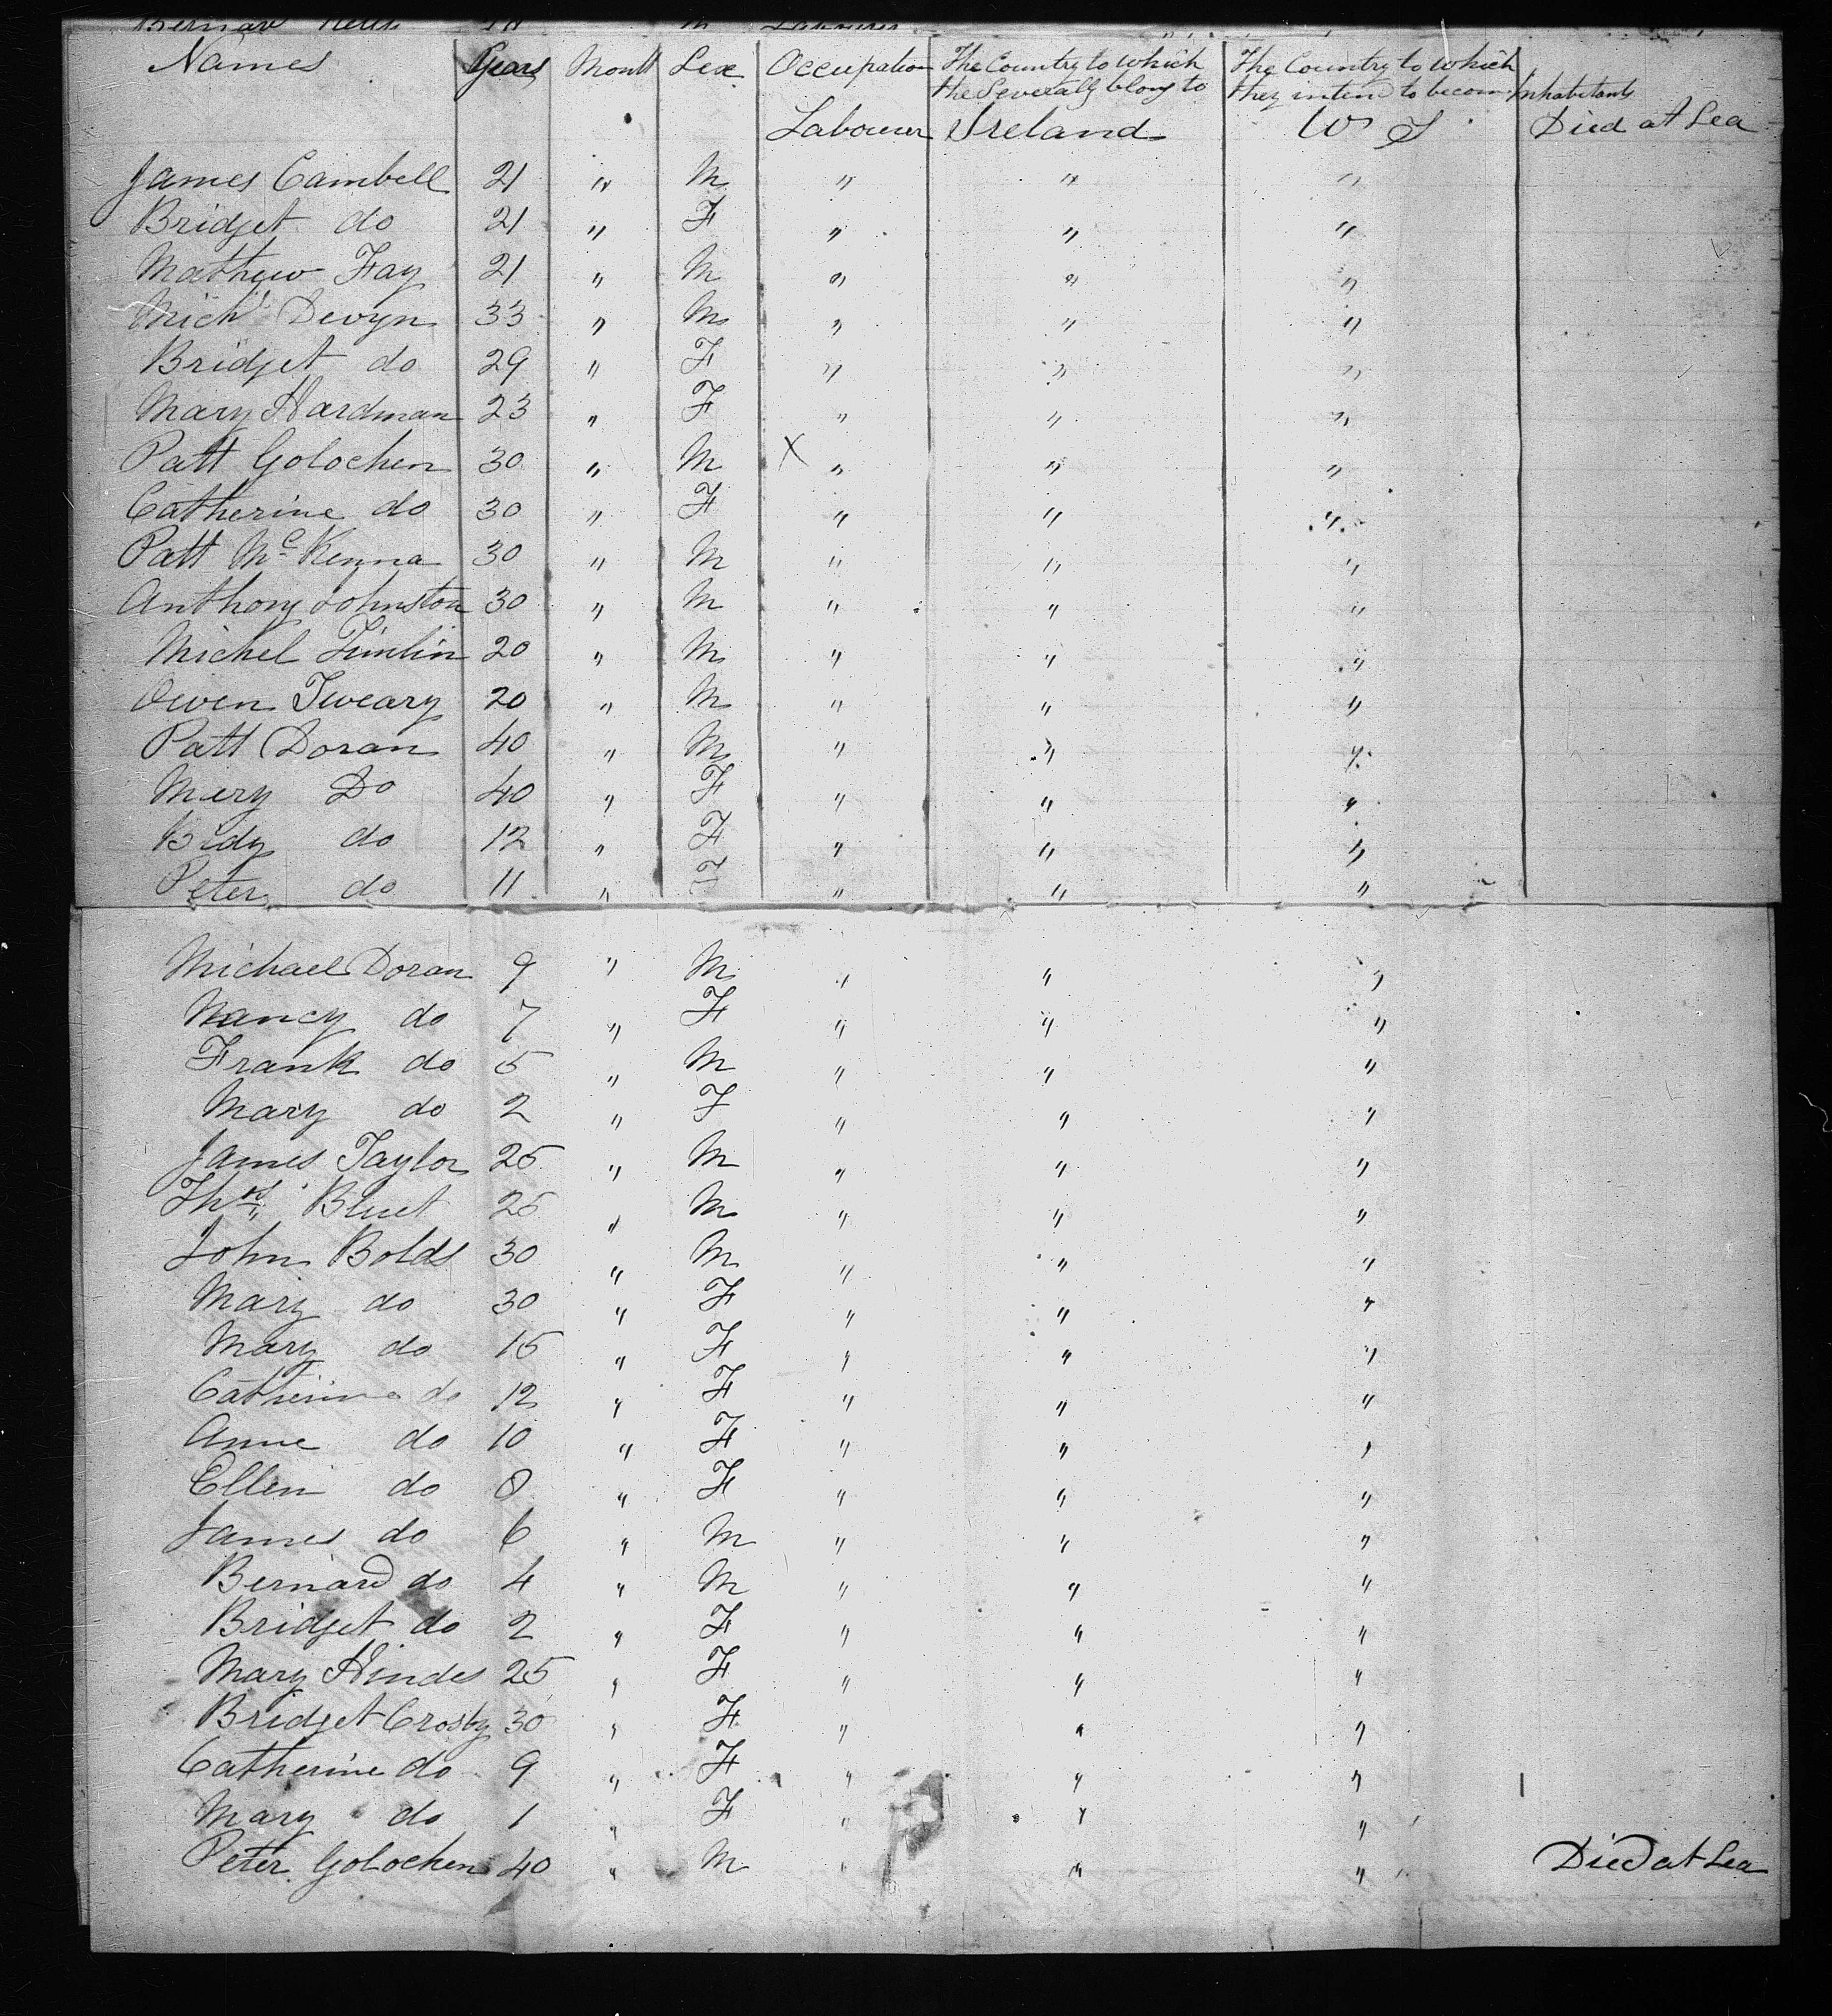 Names Years Month Sex Occupation The Country to which the Severally blong to The Country to which they intend to becom Inhabitants
Labourer Ireland Died at Sea
James Cambell 21 " M " " "
Bridget do 21 " F " " "
Mathew Fay 21 " M " " "
Mich Devyn 33 " M " " "
Bridget do 29 " F " " "
Mary Hardman 23 " F " " "
Patt Golochen 30 " M X " " "
Catherine do 30 " F " " "
Patt McKenna 30 " M " " "
Anthony Johnston 30 " M " " "
Michel Timlin 20 " M " " "
Owen Tweary 20 " M " " "
Patt Doran 40 " M " " "
Mery Do 40 " F " " "
Bidy do 12 " F " " "
Peter do 11 " F " " "
Michael Doran 9 " M " " "
Nancy do 7 " F " " "
Frank do 5 " M " " "
Mary do 2 " F " " "
James Taylor 25 " M " " "
Thos Bluet 25 " M " " "
John Bolds 30 " M " " "
Mary do 30 " F " " "
Mary do 15 " F " " "
Catherine do 12 " F " " "
Anne do 10 " F " " "
Ellen do 8 " F " " "
James do 6 " M " " "
Bernard do 4 " M " " "
Bridget do 2 " F " " "
Mary Hindes 25 " F " " "
Bridget Crosby 30 " F " " "
Catherine do 9 " F " " "
Mary do 1 " F " " "
Peter Golochen 40 " M " " " Died at Sea